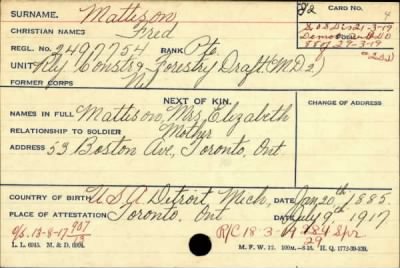 SURNAME. Mattison
CARD NO.
CHRISTIAN NAMES Fred
4
REGL. NO. 2497754 RANK Pte.
S O S Dis 21-3-19
UNIT Rly Constr & Forestry Draft. (MD2)
FORMER CORPS Nil
NEXT OF KIN.
CHANGE OF ADDRESS
NAMES IN FULL Mattison, Mrs. Elizabeth
RELATIONSHIP TO SOLDIER Mother
ADDRESS 53 Boston Ave, Toronto, Ont.
COUNTRY OF BIRTH U S A Detroit Mich, DATE Jan 20th, 1885.
PLACE OF ATTESTATION Toronto. Ont DATE July 9th, 1917
O/S. 13-8-17 907/13
R/C 18-3-19 284 Spr
29
L. L. 6945. M. & D. 6694.
M. F. W. 22. 100M.-8-18. H. Q. 1772-39-339.